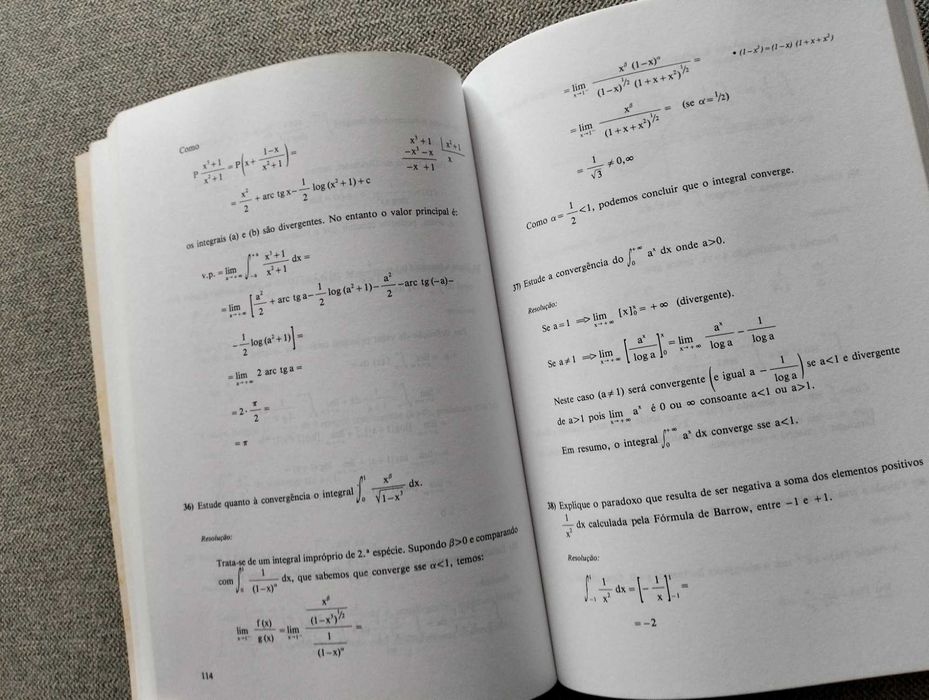 Como
P (x³+1)/(x²+1) = P(x + (1−x)/(x²+1)) =
x³+1 | x²+1
−x³−x   x
−x +1
= x²/2 + arc tg x − 1/2 log (x²+1) + c
os integrais (a) e (b) são divergentes. No entanto o valor principal é:
v.p. = lim x→+∞ ∫₋ₐ⁺ᵃ (x³+1)/(x²+1) dx =
= lim x→+∞ [a²/2 + arc tg a − 1/2 log (a²+1) − a²/2 − arc tg (−a) −
− 1/2 log (a²+1)] =
= lim x→+∞ 2 arc tg a =
= 2 · π/2 =
= π
36) Estude quanto à convergência o integral ∫₀¹ xᵝ/√(1−x³) dx.
Resolução:
Trata-se de um integral impróprio de 2.ª espécie. Supondo β>0 e comparando
com ∫₀¹ 1/(1−x)ᵅ dx, que sabemos que converge sse α<1, temos:
lim x→1⁻ f(x)/g(x) = lim x→1⁻ (xᵝ/(1−x³)^1/2)/(1/(1−x)ᵅ) =
114
= lim x→1⁻ xᵝ (1−x)ᵅ/((1−x)^1/2 (1+x+x²)^1/2) =
• (1−x³)=(1−x) (1+x+x²)
= lim x→1⁻ xᵝ/(1+x+x²)^1/2 = (se α=1/2)
= 1/√3 ≠ 0,∞
Como α = 1/2 < 1, podemos concluir que o integral converge.
37) Estude a convergência do ∫₀⁺∞ aˣ dx onde a>0.
Resolução:
Se a=1 ⟹ lim x→+∞ [x]₀ˣ = +∞ (divergente).
Se a≠1 ⟹ lim x→+∞ [aˣ/log a]₀ˣ = lim x→+∞ aˣ/log a − 1/log a
Neste caso (a≠1) será convergente (e igual a − 1/log a) se a<1 e divergente
de a>1 pois lim x→+∞ aˣ é 0 ou ∞ consoante a<1 ou a>1.
Em resumo, o integral ∫₀⁺∞ aˣ dx converge sse a<1.
38) Explique o paradoxo que resulta de ser negativa a soma dos elementos positivos
1/x² dx calculada pela Fórmula de Barrow, entre −1 e +1.
Resolução:
∫₋₁¹ 1/x² dx = [−1/x]₋₁¹ =
= −2